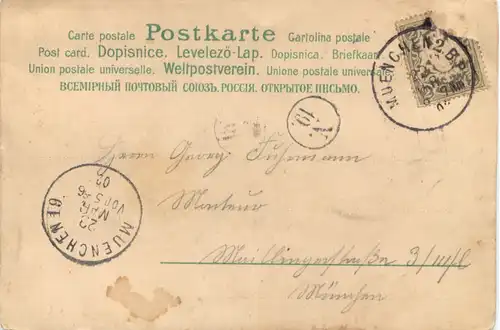 Carte postale Postkarte Cartolina postale
Post card. Dopisnice. Levelező-Lap. Dopisnica. Briefkaart
Union postale universelle. Weltpostverein. Unione postale universale
ВСЕМІРНЫЙ ПОЧТОВЫЙ СОЮЗЪ. РОССІЯ. ОТКРЫТОЕ ПИСЬМО.
MUENCHEN 2 B.P.
Herrn Georg Fuhsmann
Monteur
Maillingerstraße 3/
München
MUENCHEN 19
23
MAR
VOR 5-6
02